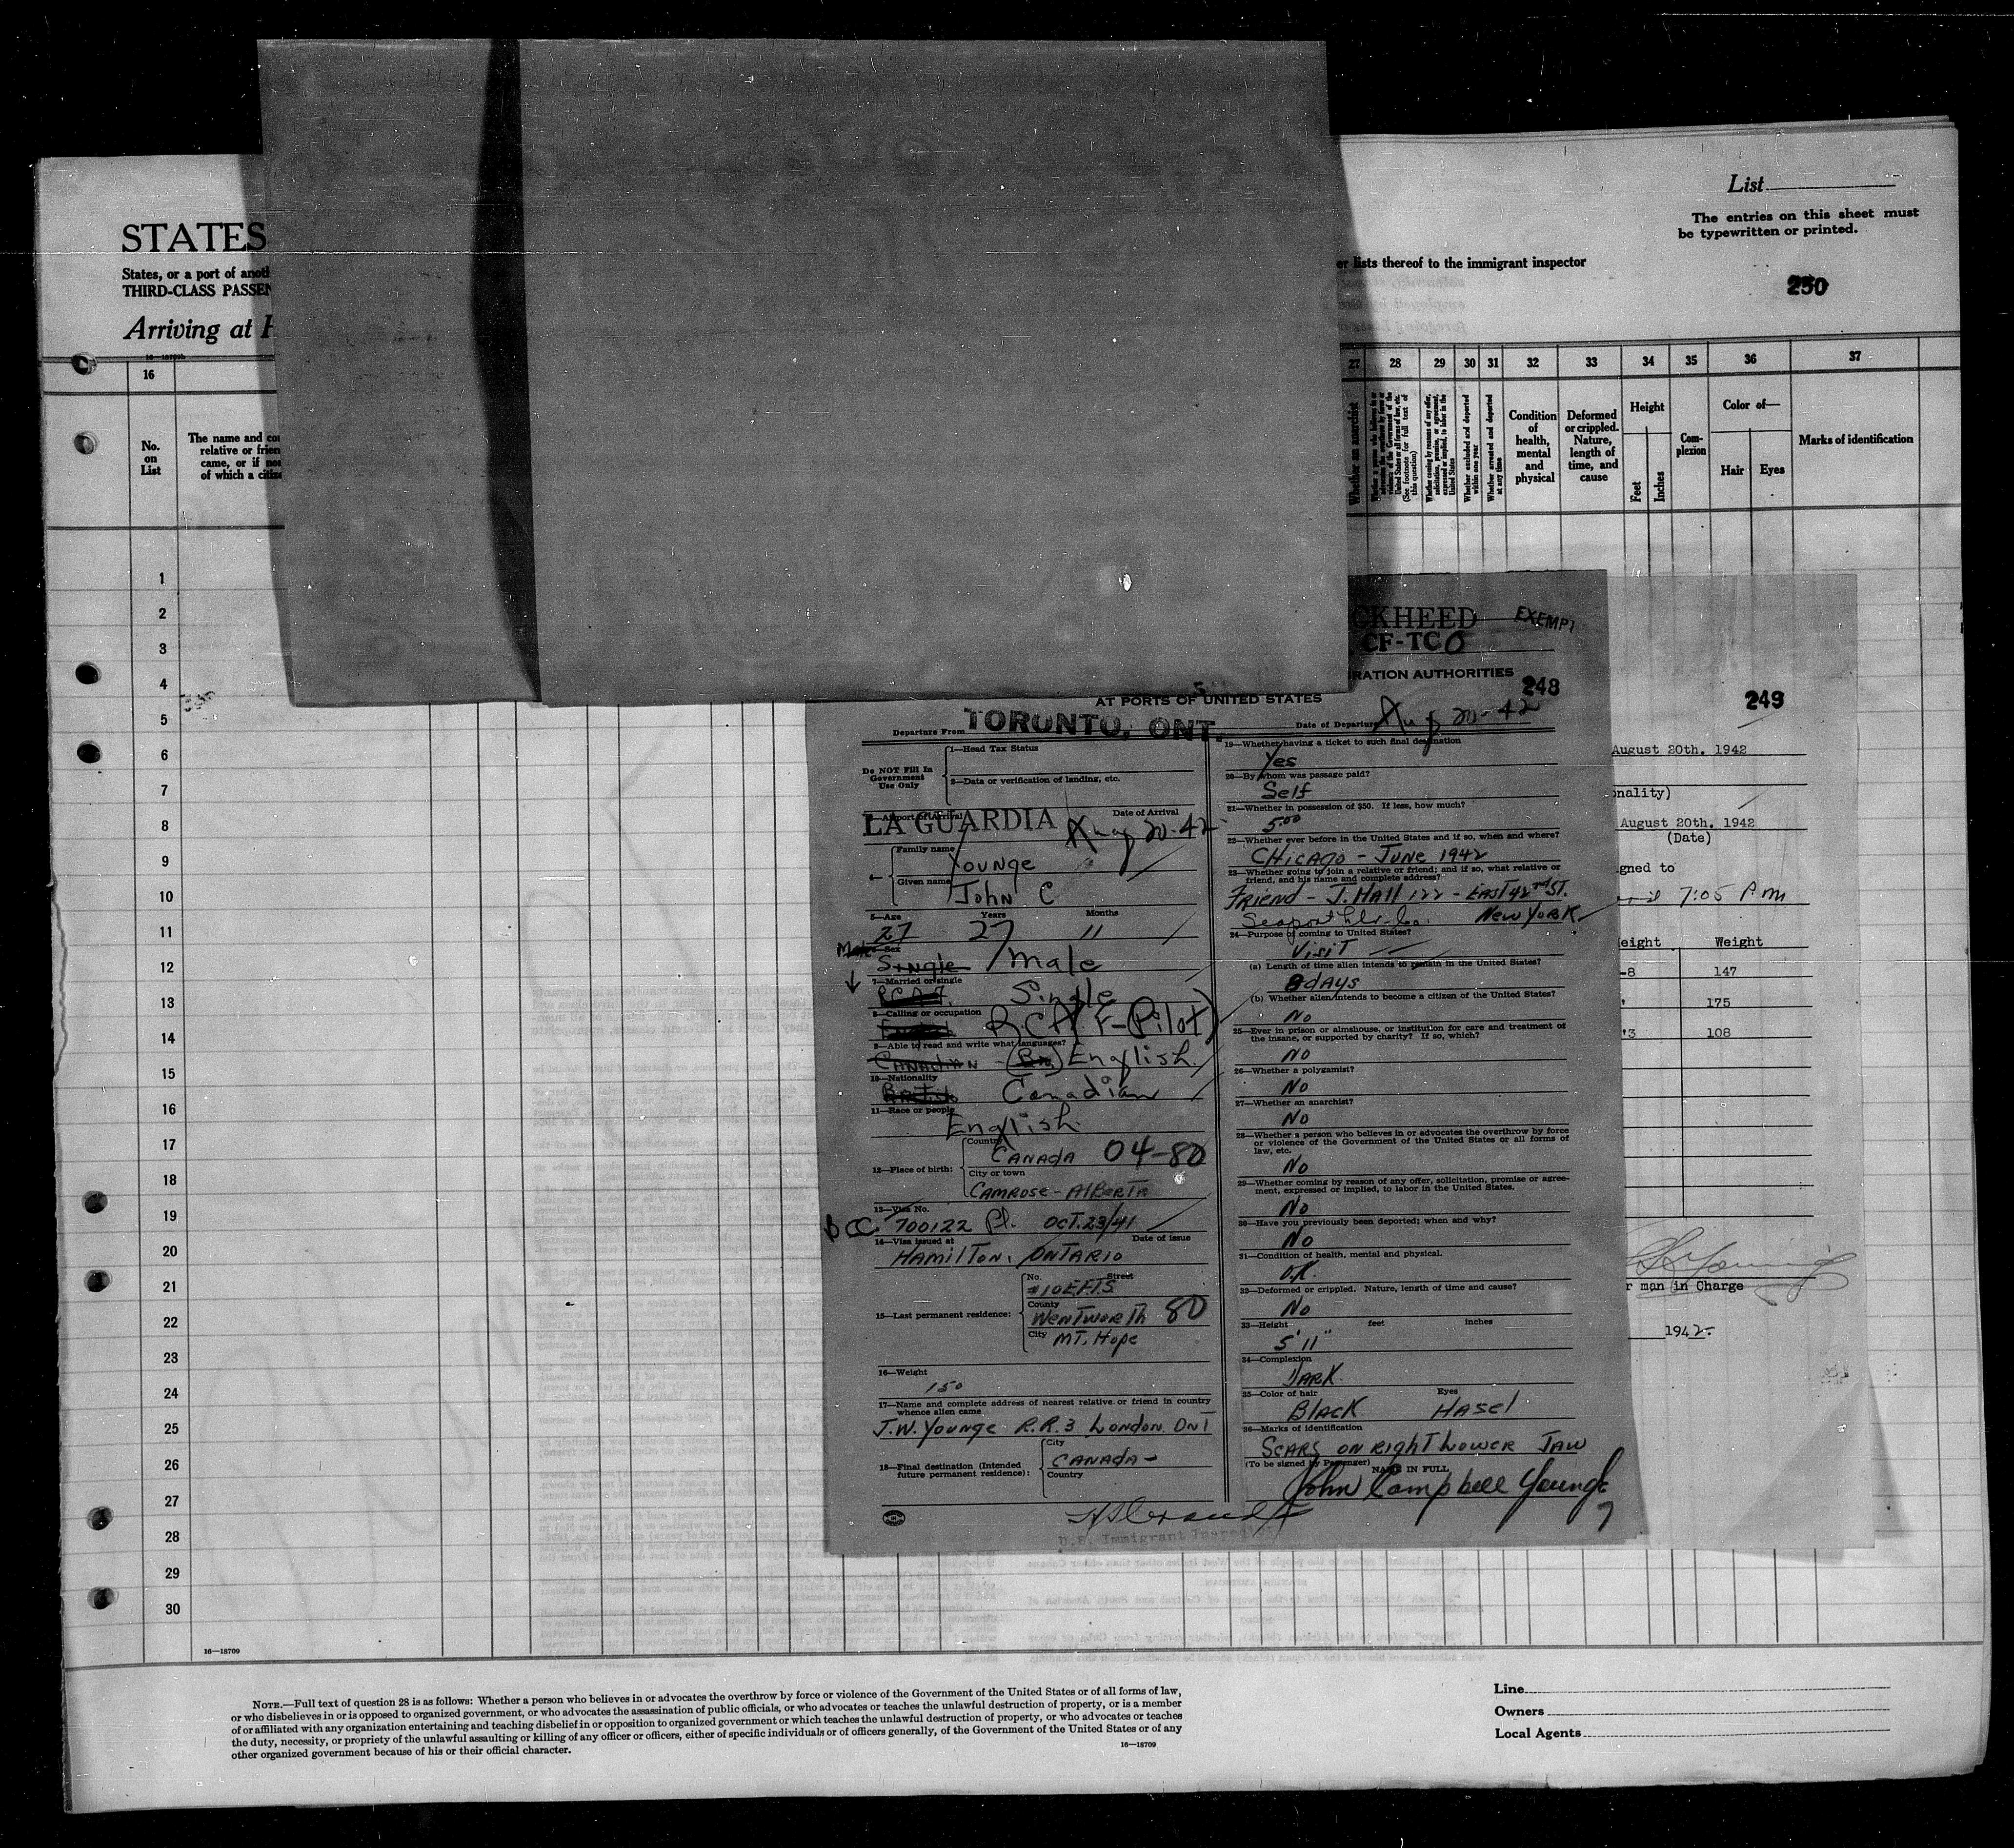 List
The entries on this sheet must
be typewritten or printed.
STATES
States, or a port of anoth
THIRD-CLASS PASSEN
er lists thereof to the immigrant inspector
250
Arriving at H
16
27 28 29 30 31 32 33 34 35 36 37
No.
on
List
The name and co
relative or frien
came, or if no
of which a citiz
Whether an anarchist
(See footnote for full text of
this question)
Whether excluded and deported
within one year
Whether arrested and deported
at any time
Condition
of
health,
mental
and
physical
Deformed
or crippled.
Nature,
length of
time, and
cause
Height
Feet
Inches
Com-
plexion
Color of—
Hair
Eyes
Marks of identification
1
2
3
4
5
6
7
8
9
10
11
12
13
14
15
16
17
18
19
20
21
22
23
24
25
26
27
28
29
30
16—18709
CKHEED
EXEMPT
CF-TCO
RATION AUTHORITIES
AT PORTS OF UNITED STATES
248
Departure From TORONTO, ONT.
Date of Departure Aug 20-42
Do NOT Fill In
Government
Use Only
1—Head Tax Status
2—Data or verification of landing, etc.
3—Airport of Arrival
Date of Arrival
LA GUARDIA Aug 20-42
Family name
Younge
Given name
John C
5—Age Years Months
27 27 11
Male
6—Sex
Single Male
7—Married or single
Single
8—Calling or occupation
RCAF-Pilot
9—Able to read and write what languages?
CANADIAN English
10—Nationality
British Canadian
11—Race or people
English
12—Place of birth:
Country
CANADA 04-80
City or town
CAMROSE-ALBERTA
13—Visa No.
BCC 700122 Pl. OCT.23/41
14—Visa issued at Date of issue
HAMILTON, ONTARIO
15—Last permanent residence:
No. Street
#10 EFTS
County
WENTWORTH 80
City MT. Hope
16—Weight
150
17—Name and complete address of nearest relative or friend in country
whence alien came
J.W. Younge R.R.3 London ONT
18—Final destination (Intended
future permanent residence):
City
CANADA-
Country
U.S. Immigrant Inspector
19—Whether having a ticket to such final destination
Yes
20—By whom was passage paid?
Self
21—Whether in possession of $50. If less, how much?
5.00
22—Whether ever before in the United States and if so, when and where?
CHICAGO - JUNE 1942
23—Whether going to join a relative or friend; and if so, what relative or
friend, and his name and complete address?
FRIEND - J. HALL 122 - EAST 42nd ST.
New YORK
24—Purpose of coming to United States?
VISIT
(a) Length of time alien intends to remain in the United States?
8 DAYS
(b) Whether alien intends to become a citizen of the United States?
No
25—Ever in prison or almshouse, or institution for care and treatment of
the insane, or supported by charity? If so, which?
No
26—Whether a polygamist?
No
27—Whether an anarchist?
No
28—Whether a person who believes in or advocates the overthrow by force
or violence of the Government of the United States or all forms of
law, etc.
No
29—Whether coming by reason of any offer, solicitation, promise or agree-
ment, expressed or implied, to labor in the United States.
No
30—Have you previously been deported; when and why?
No
31—Condition of health, mental and physical.
O.K.
32—Deformed or crippled. Nature, length of time and cause?
No
33—Height feet inches
5' 11"
34—Complexion
DARK
35—Color of hair Eyes
BLACK HASel
36—Marks of identification
SCARS ON RIGHT LOWER JAW
(To be signed by Passenger) NAME IN FULL
John Campbell Younge
7
249
August 20th, 1942
onality)
August 20th, 1942
(Date)
igned to
7:05 P.m
eight Weight
-8 147
175
'3 108
r man in Charge
1942
NOTE.—Full text of question 28 is as follows: Whether a person who believes in or advocates the overthrow by force or violence of the Government of the United States or of all forms of law,
or who disbelieves in or is opposed to organized government, or who advocates the assassination of public officials, or who advocates or teaches the unlawful destruction of property, or is a member
of or affiliated with any organization entertaining and teaching disbelief in or opposition to organized government or which teaches the unlawful destruction of property, or who advocates or teaches
the duty, necessity, or propriety of the unlawful assaulting or killing of any officer or officers, either of specific individuals or of officers generally, of the Government of the United States or of any
other organized government because of his or their official character.
16—18709
Line
Owners
Local Agents